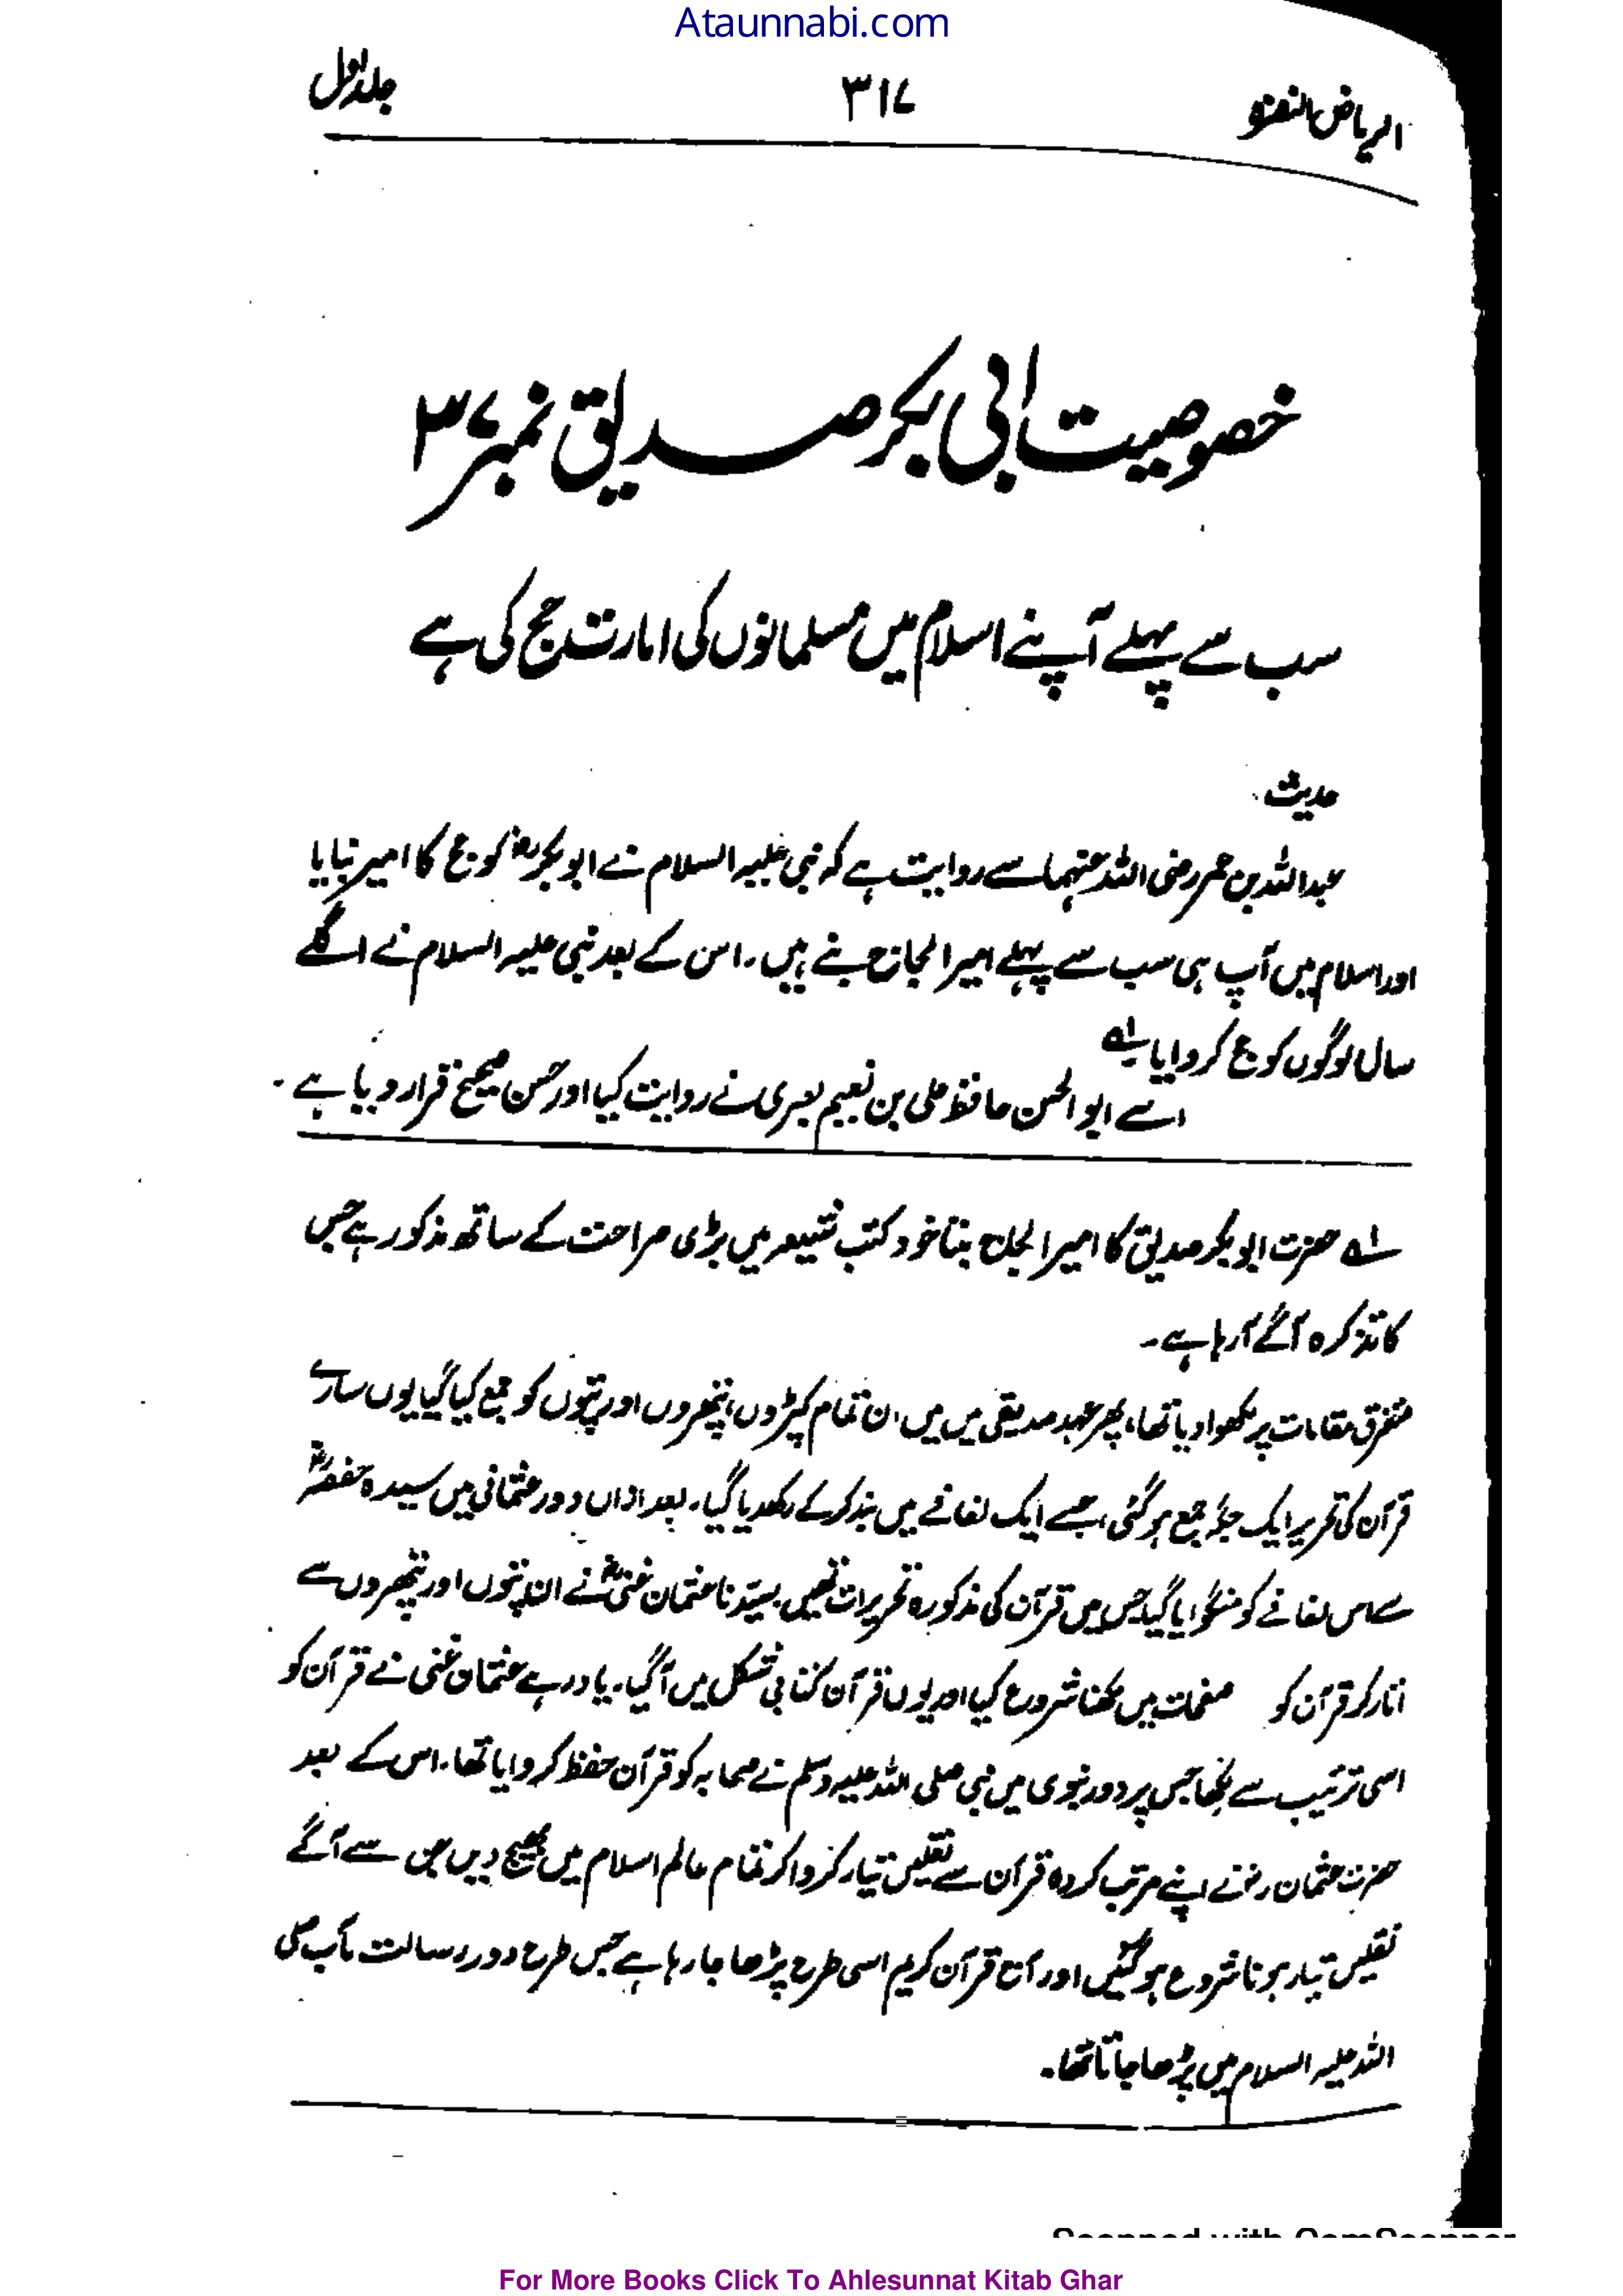 Ataunnabi.com
الریاض النضرہ ۳۱۷ جلد اول
خصوصیت ابی بکر صدیق نمبر ۳۷
سب سے پہلے آپنے اسلام میں مسلمانوں کی امارت حج کی ہے
حدیث
عبداللہ بن عمر رضی اللہ عنہما سے روایت ہے کہ نبی علیہ السلام نے ابوبکرؓ کو حج کا امیر بنایا
اور اسلام میں آپ ہی سب سے پہلے امیر الحجاج بنے ہیں۔ اس کے بعد نبی علیہ السلام نے اگلے
سال لوگوں کو حج کروایا لہ
اسے ابوالحسن حافظ علی بن نعیم بصری نے روایت کیا اور حسن صحیح قرار دیا ہے۔
لہ حضرت ابوبکر صدیق کا امیر الحجاج بننا خود کتب شیعہ میں بڑی صراحت کے ساتھ مذکور ہے جس
کا تذکرہ آگے آرہا ہے۔
متفرق مقامات پر لکھوا دیا تھا، پھر عہد صدیقی میں میں ان تمام کپڑوں، پتھروں اور پتوں کو جمع کیا گیا یوں سارے
قرآن کی تحریر ایک جگہ جمع ہو گئی، جسے ایک لفافے میں بند کر کے رکھدیا گیا۔ بعد ازاں دور عثمانی میں سیدہ حفصہؓ
سے اس لفافے کو منگوایا گیا جس میں قرآن کی مذکورہ تحریرات تھیں۔ سیدنا عثمان غنیؓ نے ان پتوں اور پتھروں سے
اتار کر قرآن کو صفحات میں لکھنا شروع کیا اور یوں قرآن کتابی شکل میں آگیا۔ یاد رہے عثمان غنی نے قرآن کو
اسی ترتیب سے لکھا جس پر دور نبوی میں نبی صلی اللہ علیہ وسلم نے صحابہ کو قرآن حفظ کروایا تھا۔ اس کے بعد
حضرت عثمان رضؓ نے اپنے مرتب کردہ قرآن سے نقلیں تیار کروا کر تمام عالم اسلام میں بھیج دیں جن سے آگے
نقلیں تیار ہونا شروع ہو گئیں اور آج قرآن کریم اسی طرح پڑھا جا رہا ہے جس طرح دور رسالت مآب صلی
اللہ علیہ السلام میں پڑھا جاتا تھا۔
Scanned with CamScanner
For More Books Click To Ahlesunnat Kitab Ghar